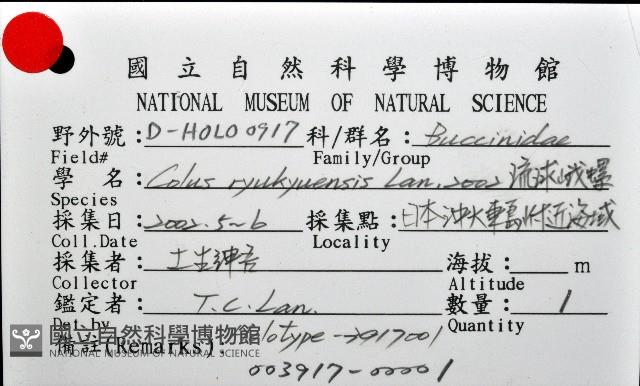 國立自然科學博物館
NATIONAL MUSEUM OF NATURAL SCIENCE
野外號: D-HOLO0917 科/群名: Buccinidae
Field# Family/Group
學 名: Colus ryukyuensis Lan, 2002 琉球峨螺
Species
採集日: 2002.5~6 採集點: 日本沖大轉附近海域
Coll.Date Locality
採集者: 土生紳吾 海拔: m
Collector Altitude
鑑定者: T.C. Lan. 數量: 1
Det.by Quantity
備註(Remarks): lotype→917001
國立自然科學博物館
NATIONAL MUSEUM OF NATURAL SCIENCE
003917-00001